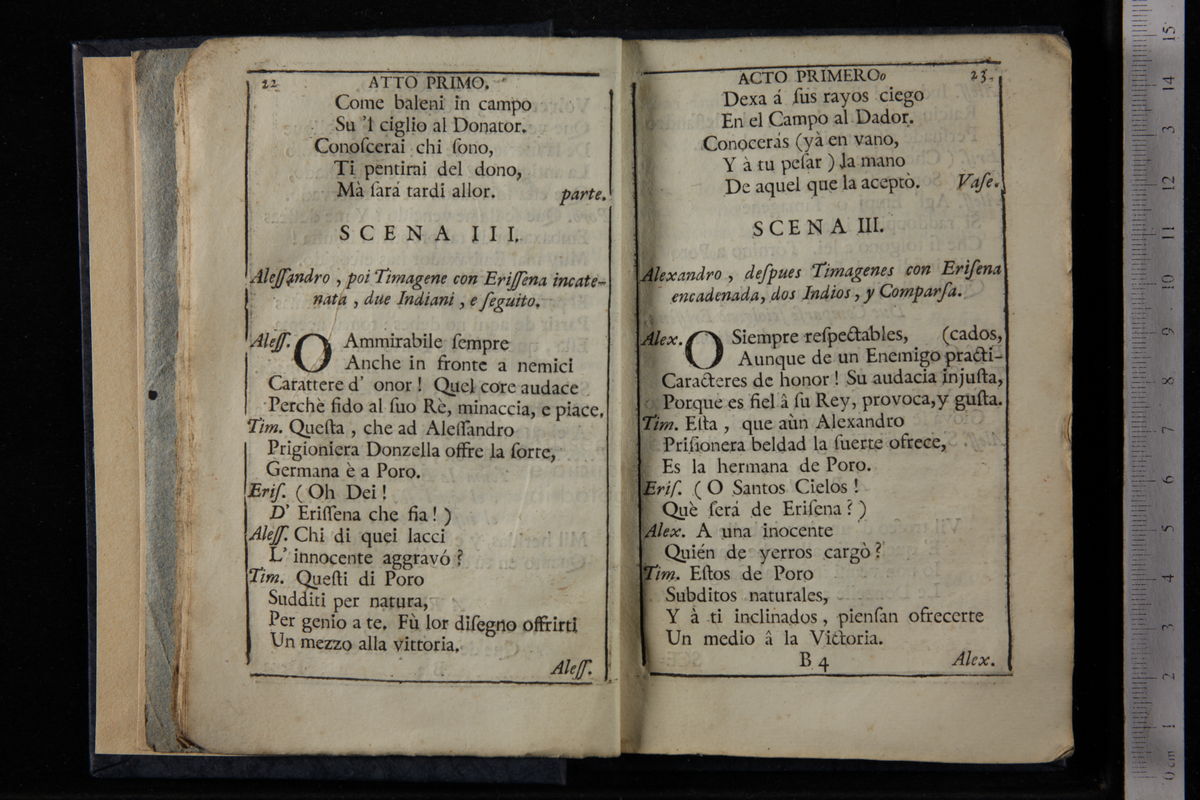 22 ATTO PRIMO.
Come baleni in campo
Su 'l ciglio al Donator.
Conoſcerai chi ſono,
Ti pentirai del dono,
Mà ſará tardi allor. parte.
SCENA III.
Aleſſandro, poi Timagene con Eriſſena incate-
nata, due Indiani, e ſeguito.
Aleſſ. O Ammirabile ſempre
Anche in fronte a nemici
Carattere d' onor! Quel core audace
Perchè fido al ſuo Rè, minaccia, e piace.
Tim. Queſta, che ad Aleſſandro
Prigioniera Donzella offre la ſorte,
Germana è a Poro.
Eriſ. (Oh Dei!
D' Eriſſena che fia!)
Aleſſ. Chi di quei lacci
L' innocente aggravó?
Tim. Queſti di Poro
Sudditi per natura,
Per genio a te. Fù lor diſegno offrirti
Un mezzo alla vittoria.
Aleſſ.
ACTO PRIMERO. 23.
Dexa á ſus rayos ciego
En el Campo al Dador.
Conocerás (yà en vano,
Y à tu peſar) la mano
De aquel que la aceptò. Vaſe.
SCENA III.
Alexandro, deſpues Timagenes con Eriſena
encadenada, dos Indios, y Comparſa.
Alex. O Siempre reſpectables, (cados,
Aunque de un Enemigo practi-
Caracteres de honor! Su audacia injuſta,
Porque es fiel â ſu Rey, provoca, y guſta.
Tim. Eſta, que aùn Alexandro
Priſionera beldad la ſuerte ofrece,
Es la hermana de Poro.
Eriſ. (O Santos Cielos!
Què ſerá de Eriſena?)
Alex. A una inocente
Quién de yerros cargò?
Tim. Eſtos de Poro
Subditos naturales,
Y à ti inclinados, pienſan ofrecerte
Un medio â la Victoria.
B 4 Alex.
15
14
13
12
11
10
9
8
7
6
5
4
3
2
1
0 cm